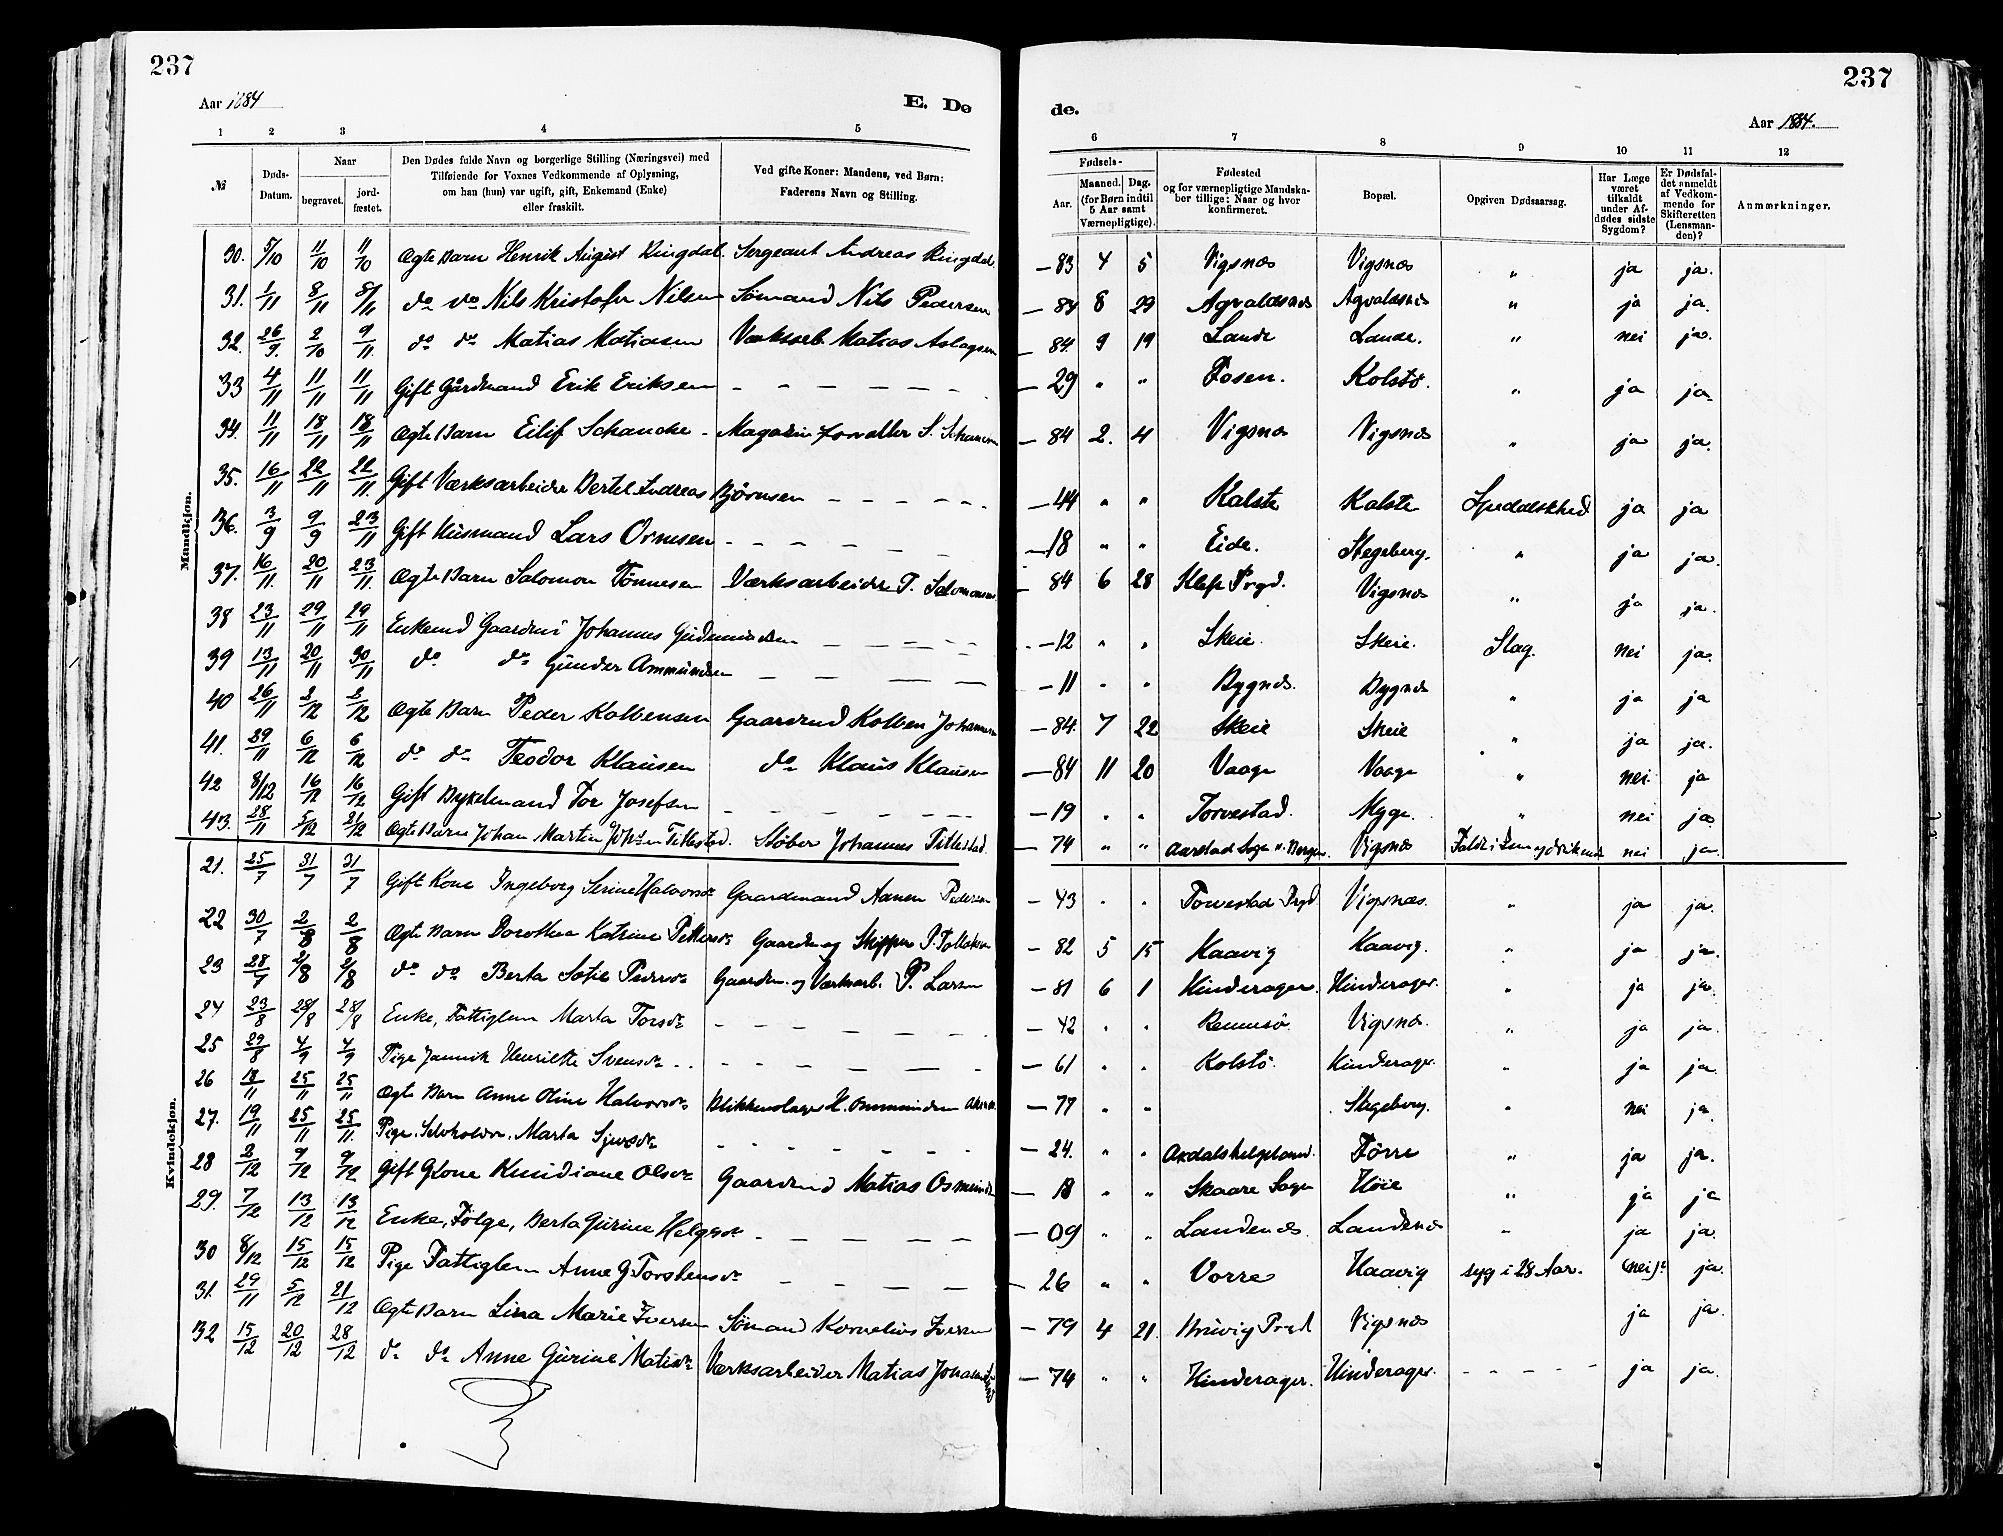 237
237
Aar 1884
E. Dø
de.
Aar 1884.
1 2 3 4 5
6 7 8 9 10 11 12
№ Døds-Datum. Naar begravet. jordfæstet. Den Dødes fulde Navn og borgerlige Stilling (Næringsvei) med Tilføiende for Voxnes Vedkommende af Oplysning, om han (hun) var ugift, gift, Enkemand (Enke) eller fraskilt. Ved gifte Koner: Mandens, ved Børn: Faderens Navn og Stilling.
Fødsels- Aar. Maaned. Dag. (for Børn indtil 5 Aar samt Værnepligtige). Fødested og for værnepligtige Mandskaber tillige: Naar og hvor konfirmeret. Bopæl. Opgiven Dødsaarsag. Har Læge været tilkaldt under Afdødes sidste Sygdom? Er Dødsfaldet anmeldt af Vedkommende for Skifteretten (Lensmanden)? Anmærkninger.
Mandkjøn.
30. 5/10 11/10 11/10 Ægte Barn Henrik August Ringdal. Sergeant Andreas Ringdal — 83 4 5 Vigsnæs Vigsnæs " ja ja.
31. 1/11 8/11 8/11 do do Nils Kristofer Nilsen Sømand Nils Pedersen — 84 8 29 Agvaldsnæs Agvaldsnæs " ja ja.
32. 26/9 2/10 9/11 do do Matias Matiasen Værksarb. Matias Aslagsen — 84 9 19 Lande Lande. " nei ja.
33 4/11 11/11 11/11 Gift Gårdmand Erik Eriksen — 29 " " Fosen. Kolstø. " ja ja.
34. 11/11 18/11 18/11 Ægte Barn Eilif Schanche - Magasinforvalter S. — 84 2. 4 Vigsnæs Vigsnæs " ja ja.
35. 16/11 22/11 22/11 Gift Værksarbeider Bertel Andreas Bjørnsen — 44 " " Kalstø Kalstø Spedalskhed ja ja
36. 3/9 9/9 23/11 Gift Husmand Lars Ormsen — 18 " " Eide. Stegeberg. " ja ja.
37. 16/11 20/11 23/11 Ægte Barn Salomon Tønnesen Værksarbeider T. Salomonsen — 84 6 28 Klep Prgd. Vigsnæs " ja ja.
38 23/11 29/11 29/11 Enkemd Gaardm. Johannes Gudmundsen — 12 " " Skeie. Skeie. Slag. nei ja.
39 13/11 20/11 30/11 do do Gunder Ammundsen — 11 " " Bygnæs. Bygnæs " ja ja
40 26/11 2/12 2/12 Ægte Barn Peder Kolbensen Gaardmd Kolben Johannesen — 84. 7 22 Skeie Skeie " ja ja.
41. 29/11 6/12 6/12 do do Teodor Klausen do Klaus Klausen — 84 11 20 Vaage Vaage " nei ja
42 8/12 16/12 16/12 Gift Dykelmand Tor Josefsen — 19 " " Torvestad. Myge. " nei ja.
43. 28/11 5/12 21/12 Ægte Barn Johan Martin Tittestad. Støber Johannes Tittestad — 74 " " Aarstad Sogn v. Bergen. Vigsnæs nei ja.
Kvindekjøn.
21. 25/7 31/7 31/7 Gift Kone Ingeborg Serine Halvorsdr Gaardmand Aanen Pedersen — 43 " " Torvestad Prgd Vigsnæs. " ja ja.
22 30/7 2/8 2/8 Ægte Barn Dorothea Katrine Pettersdr Gaardm og Skipper P. Tollaksen — 82 5 15 Haavig Haavig. " ja ja.
23 28/7 2/8 2/8 do do Berta Sofie Pedersdr Gaardm. og Værksarb. P. Larsen — 81 6 1 Hinderager. Hinderager. " ja ja.
24 23/8 28/8 28/8 Enke, Fattiglem Marta Torsdr — 42 " " Rennesø Vigsnæs. " ja ja.
25 29/8 4/9 4/9 Pige Jannik Henriette Svensdr — 61 " " Kolstø. Hinderager. " ja ja.
26 18/11 25/11 25/11 Ægte Barn Anne Oline Halvorsdr Blikkenslager H. Ommundsen — 77 " " Stegeberg. " nei ja.
27. 19/11 25/11 25/11. Pige. Selvholden. Marta Sjursdr — 24. " " Førre " ja ja.
28 2/12 9/12 9/12 Gift Kone Knudiane Olsdr Gaardmd Matias Osmundsen — 18 " " Skaare Sogn Høie " ja ja
29. 7/12 13/12 13/12 Enke, Følge, Berta Gurine Helgesdr — 09 " " Landenæs. Landenæs " ja ja.
30 8/12 15/12 15/12 Pige Fattiglem Anne G Torstensdr — 26 " " Vorre Haavig syg i 28 Aar. (nei). ja.
31. 29/11 5/12 21/12 Ægte Barn Lina Marie Iversen Sømand Kornelius Iversen — 79 4 21 Bruvig Prgd Vigsnæs ja ja.
32 15/12 20/12 28/12 do do Anne Gurine Matisdr Værksarbeider Matias Johannesen — 74 " " Hinderager. Hinderager. ja ja.